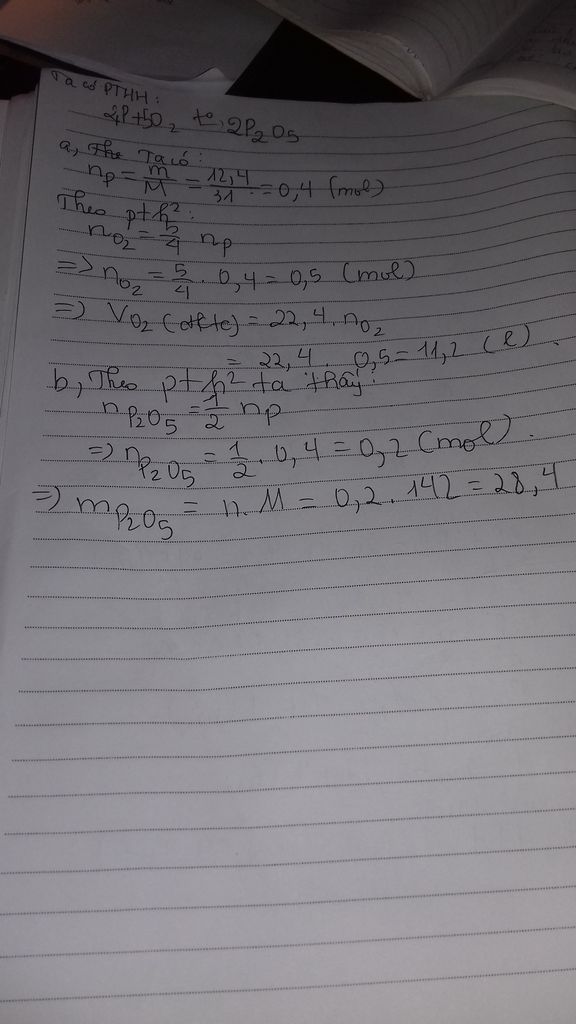 Ta có PTHH:
4P+5O₂ t°→ 2P₂O₅
a, The Ta có:
n_P = m/M = 12,4/31 = 0,4 (mol)
Theo pth²:
n_O₂ = 5/4 n_P
=> n_O₂ = 5/4 . 0,4 = 0,5 (mol)
=> V_O₂ (đktc) = 22,4 . n_O₂
= 22,4 . 0,5 = 11,2 (l).
b, Theo pth² ta thấy:
n_P₂O₅ = 1/2 n_P
=> n_P₂O₅ = 1/2 . 0,4 = 0,2 (mol).
=> m_P₂O₅ = n. M = 0,2 . 142 = 28,4